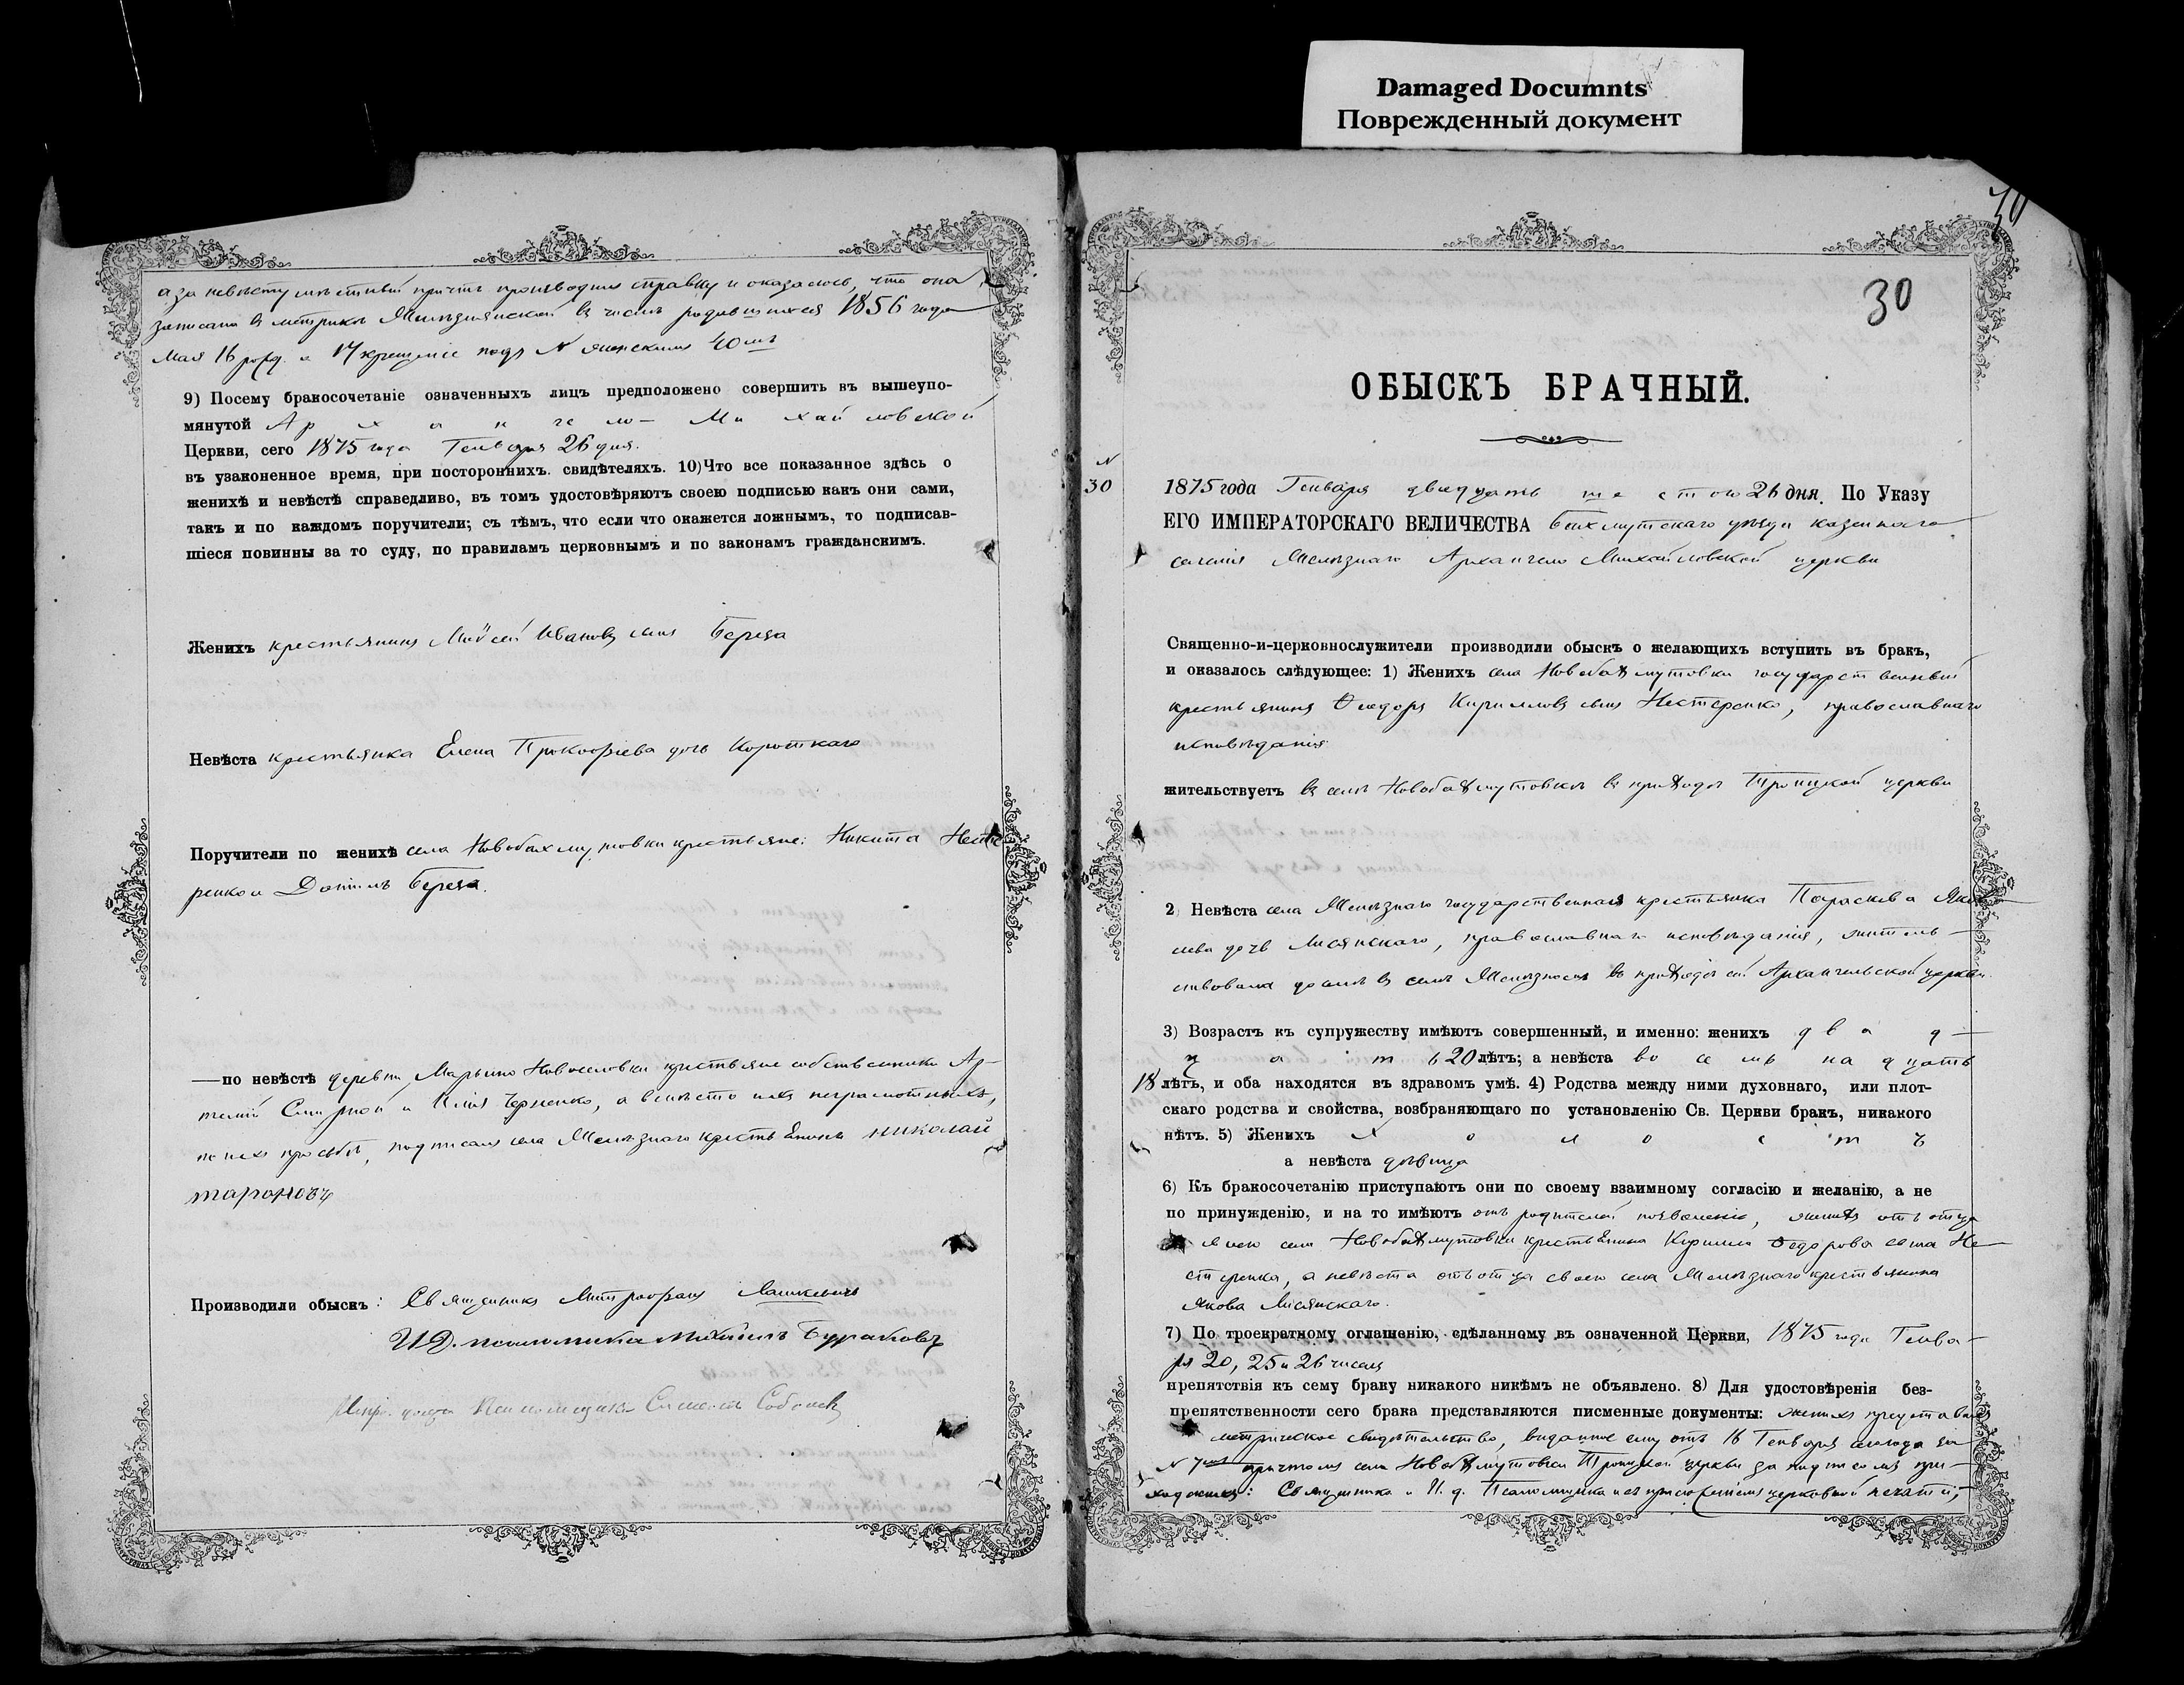 Damaged Documnts
Поврежденный документ
а за невѣсту мѣстный причтъ производилъ справку и оказалось, что она
записана въ метрикѣ Желѣзнянской въ числѣ родившихся 1856 года
мая 16 рожд. и 17 крещеніе подъ N женскимъ 40мъ
9) Посему бракосочетаніе означенныхъ лицъ предположено совершить въ вышеупо-
мянутой Архангело-Михайловской
Церкви, сего 1875 года Генваря 26 дня.
въ узаконенное время, при постороннихъ. свидѣтеляхъ. 10) Что все показанное здѣсь о
женихѣ и невѣстѣ справедливо, въ томъ удостовѣряютъ своею подписью какъ они сами,
такъ и по каждомъ поручители; съ тѣмъ, что если что окажется ложнымъ, то подписав-
шіеся повинны за то суду, по правиламъ церковнымъ и по законамъ гражданскимъ.
Женихъ крестьянинъ Моѵсей Ивановъ сынъ Береза
Невѣста крестьянка Елена Прокофіева дочь Короткаго
Поручители по женихѣ села Новобахмутовки крестьяне: Никита Несте
ренко и Даніилъ Береза.
— по невѣстѣ деревни Марьино Новоселовки крестьяне собственники Ар-
темій Смирной и Илія Черненко, а вмѣсто ихъ неграмотныхъ,
по ихъ просьбѣ, подписался села Желѣзнаго крестьянинъ николай
тарановъ
Производили обыскъ: Священникъ Митрофанъ Лашкевичъ
И.Д. псаломщика Михаилъ Бураковъ
Псаломщикъ Симеонъ
30
30
ОБЫСКЪ БРАЧНЫЙ.
N
30
1875 года Генваря двадцать шестого 26 дня. По Указу
ЕГО ИМПЕРАТОРСКАГО ВЕЛИЧЕСТВА Бахмутскаго уѣзда казеннаго
селенія Желѣзнаго Архангело Михайловской церкви
Священно-и-церковнослужители производили обыскъ о желающихъ вступить въ бракъ,
и оказалось слѣдующее: 1) Женихъ села Новобахмутовки государственный
крестьянинъ Ѳеодоръ Кирилловъ сынъ Нестеренко, православнаго
исповѣданія
жительствуетъ въ селѣ Новобахмутовкѣ въ приходѣ Троицкой церкви
2) Невѣста села Желѣзнаго государственная крестьянка Параскева Яков
лева дочь Лисянскаго, православнаго исповѣданія, житель-
ствовала донынѣ въ селѣ Желѣзномъ въ приходѣ сей Архангельской церкви.
3) Возрастъ къ супружеству имѣютъ совершенный, и именно: женихъ двад-
цать 20 лѣтъ; а невѣста восемнадцать
18 лѣтъ, и оба находятся въ здравомъ умѣ. 4) Родства между ними духовнаго, или плот-
скаго родства и свойства, возбраняющаго по установленію Св. Церкви бракъ, никакого
нѣтъ. 5) Женихъ холостъ
а невѣста дѣвица
6) Къ бракосочетанію приступаютъ они по своему взаимному согласію и желанію, а не
по принужденію, и на то имѣютъ отъ родителей позволеніе, женихъ отъ отца
своего села Новобахмутовки крестьянина Кирилла Ѳедорова сына Не-
стеренка, а невѣста отъ отца своего села Желѣзнаго крестьянина
Якова Лисянскаго.
7) По троекратному оглашенію, сдѣланному въ означенной Церкви, 1875 года Генва-
ря 20, 25 и 26 числъ
препятствія къ сему браку никакого никѣмъ не объявлено. 8) Для удостовѣренія без-
препятственности сего брака представляются писменные документы: женихъ представилъ
метрическое свидѣтельство, выданное ему отъ 16 Генваря сего года за
N 7мъ причтомъ села Новобахмутовки Троицкой церкви за подписомъ при-
ходскихъ: Священника и И. д. Псаломщика и съ приложеніемъ церковной печати;